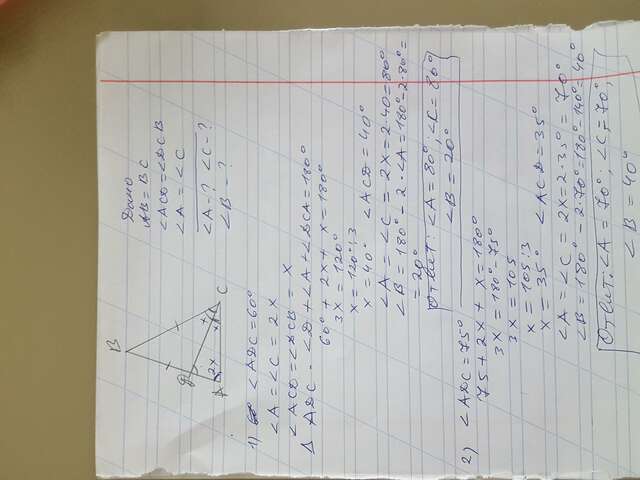 Дано
AB = BC
∠ACD = ∠DCB
∠A = ∠C
∠A - ? ∠C - ?
∠B - ?
B
D
A
2x
x
x
C
1) ∠ADC = 60°
∠A = ∠C = 2x
∠ACD = ∠DCB = x
Δ ADC - ∠D + ∠A + ∠DCA = 180°
60° + 2x + x = 180°
3x = 120°
x = 120° : 3
x = 40° ∠ACD = 40°
∠A = ∠C = 2x = 2·40 = 80°
∠B = 180° - 2·∠A = 180° - 2·80° =
= 20°
Ответ: ∠A = 80°, ∠C = 80°
∠B = 20°
2) ∠ADC = 75°
75 + 2x + x = 180°
3x = 180° - 75°
3x = 105
x = 105 : 3
x = 35° ∠ACD = 35°
∠A = ∠C = 2x = 2·35° = 70°
∠B = 180° - 2·70° = 180° - 140° = 40°
Ответ: ∠A = 70°, ∠C = 70°,
∠B = 40°